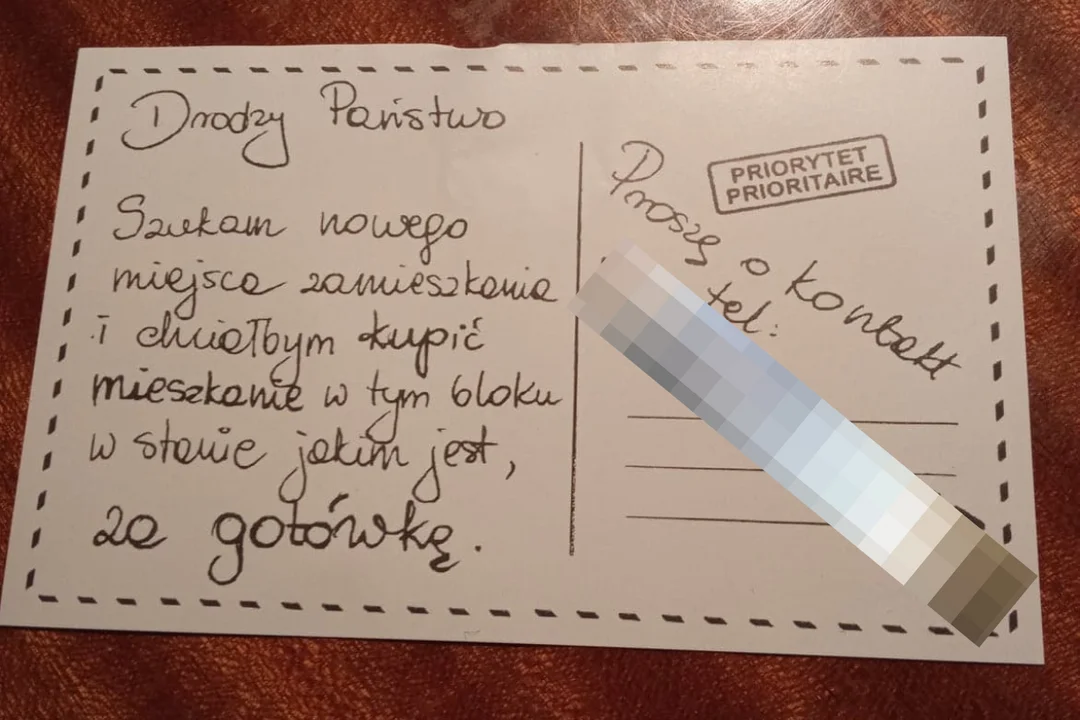 Drodzy Państwo
Szukam nowego
miejsca zamieszkania
i chciałbym kupić
mieszkanie w tym bloku
w stanie jakim jest,
za gotówkę.
PRIORYTET
PRIORITAIRE
Proszę o kontakt
tel: